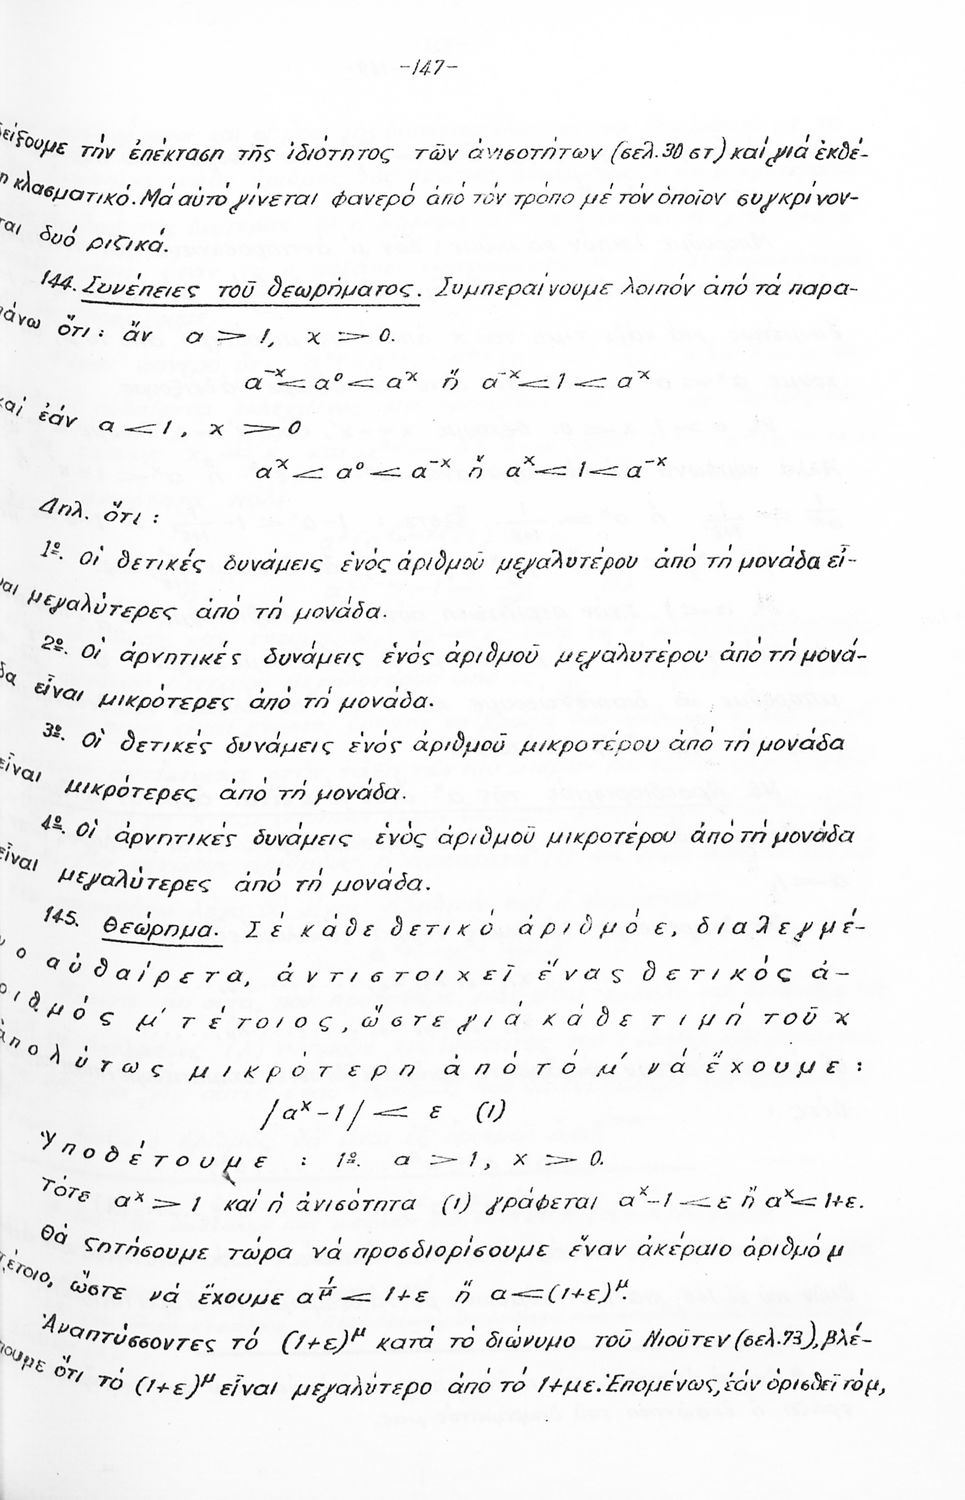 -147-
δείξουμε τήν ἐπέκταση τῆς ἰδιότητος τῶν ἀνισοτήτων (σελ.30 στ) καί γιά ἐκθέ-
η κλασματικό. Μά αὐτό γίνεται φανερό ἀπό τόν τρόπο μέ τόν ὁποῖον συγκρίνον-
ται δυό ριζικά.
144. Συνέπειες τοῦ θεωρήματος. Συμπεραίνουμε λοιπόν ἀπό τά παρα-
πάνω ὅτι: ἄν α > 1, x > 0.
α⁻ˣ < α⁰ < αˣ ἤ α⁻ˣ < 1 < αˣ
καί ἐάν α < 1, x > 0
αˣ < α⁰ < α⁻ˣ ἤ αˣ < 1 < α⁻ˣ
Δηλ. ὅτι:
1º. Οἱ θετικές δυνάμεις ἑνός ἀριθμοῦ μεγαλυτέρου ἀπό τή μονάδα εἶ-
ναι μεγαλύτερες ἀπό τή μονάδα.
2º. Οἱ ἀρνητικές δυνάμεις ἑνός ἀριθμοῦ μεγαλυτέρου ἀπό τή μονά-
δα εἶναι μικρότερες ἀπό τή μονάδα.
3º. Οἱ θετικές δυνάμεις ἑνός ἀριθμοῦ μικροτέρου ἀπό τή μονάδα
εἶναι μικρότερες ἀπό τή μονάδα.
4º. Οἱ ἀρνητικές δυνάμεις ἑνός ἀριθμοῦ μικροτέρου ἀπό τή μονάδα
εἶναι μεγαλύτερες ἀπό τή μονάδα.
145. Θεώρημα. Σέ κάθε θετικό ἀριθμό ε, διαλεγμέ-
νο αὐθαίρετα, ἀντιστοιχεῖ ἕνας θετικός ἀ-
ριθμός μ' τέτοιος, ὥστε γιά κάθε τιμή τοῦ x
ἀπολύτως μικρότερη ἀπό τό μ' νά ἔχουμε:
/αˣ-1/ < ε (1)
Ὑποθέτουμε: 1º. α > 1, x > 0.
Τότε αˣ > 1 καί ἡ ἀνισότητα (1) γράφεται αˣ-1 < ε ἤ αˣ < 1+ε.
Θά ζητήσουμε τώρα νά προσδιορίσουμε ἕναν ἀκέραιο ἀριθμό μ
τέτοιο, ὥστε νά ἔχουμε α^(1/μ) < 1+ε ἤ α < (1+ε)^μ.
Ἀναπτύσσοντες τό (1+ε)^μ κατά τό διώνυμο τοῦ Νιοῦτεν (σελ.73), βλέ-
πουμε ὅτι τό (1+ε)^μ εἶναι μεγαλύτερο ἀπό τό 1+με. Ἑπομένως, ἐάν ὁρισθεῖ τό μ,